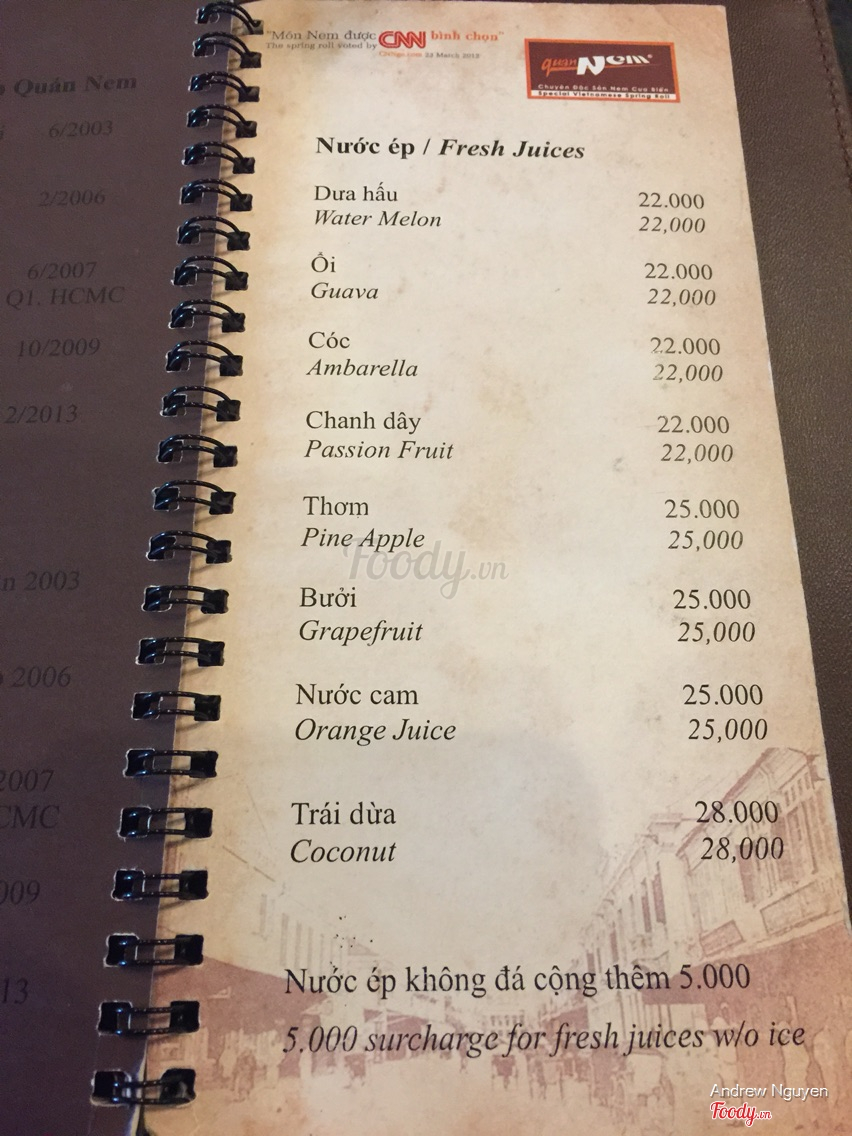 Quán Nem
6/2003
2/2006
6/2007
Q1. HCMC
10/2009
2/2013
2003
2006
2007
CMC
009
13
"Món Nem được CNN bình chọn"
The spring roll voted by
CNNgo.com 23 March 2012
quán Nem
Chuyên Đặc Sản Nem Cua Biển
Special Vietnamese Spring Roll
Nước ép / Fresh Juices
Dưa hấu 22.000
Water Melon 22,000
Ổi 22.000
Guava 22,000
Cóc 22.000
Ambarella 22,000
Chanh dây 22.000
Passion Fruit 22,000
Thơm 25.000
Pine Apple 25,000
Foody.vn
Bưởi 25.000
Grapefruit 25,000
Nước cam 25.000
Orange Juice 25,000
Trái dừa 28.000
Coconut 28,000
Nước ép không đá cộng thêm 5.000
5.000 surcharge for fresh juices w/o ice
Andrew Nguyen
Foody.vn